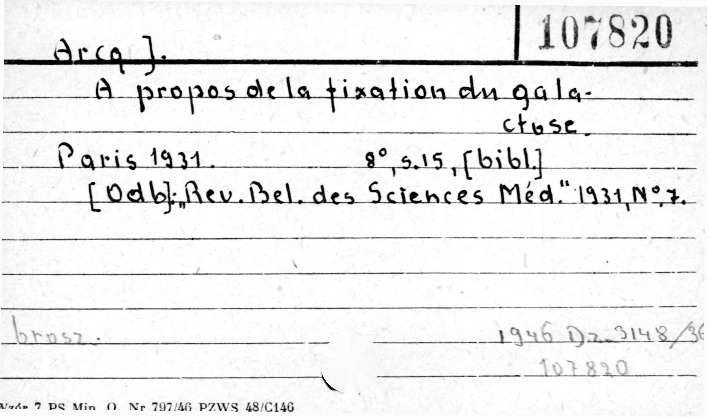 107820
Arcq J.
A propos de la fixation du gala-
ctose.
Paris 1931. 8°, s.15, [bibl.]
[Odb]: „Rev. Bel. des Sciences Méd." 1931, N°. 7.
brosz. 1946 Dz. 3148/36
107820
Wzór 7 PS Min. O. Nr 797/46 PZWS 48/C146